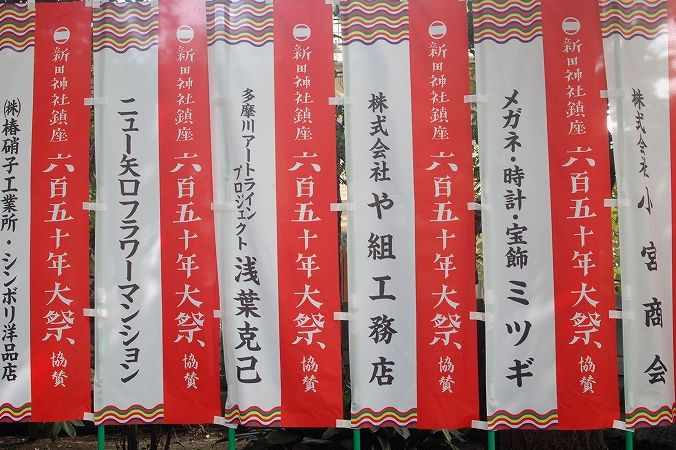 ㈱椿硝子工業所・シンボリ洋品店
新田神社鎮座 六百五十年大祭 協賛
ニュー矢口フラワーマンション
新田神社鎮座 六百五十年大祭 協賛
多摩川アートライン
プロジェクト
浅葉克己
新田神社鎮座 六百五十年大祭 協賛
株式会社 や組工務店
新田神社鎮座 六百五十年大祭 協賛
メガネ・時計・宝飾 ミツギ
新田神社鎮座 六百五十年大祭 協賛
株式会社 小宮商会